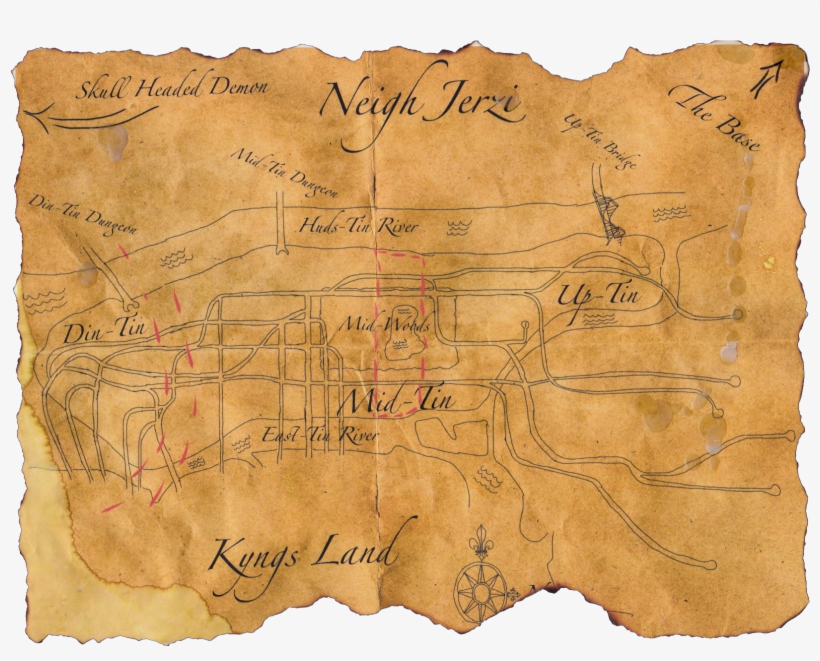 Skull Headed Demon
Neigh Jerzi
The Base
Up-Tin Bridge
Mid-Tin Dungeon
Din-Tin Dungeon
Huds-Tin River
Up-Tin
Mid-Woods
Din-Tin
Mid-Tin
East-Tin River
Kyngs Land
N